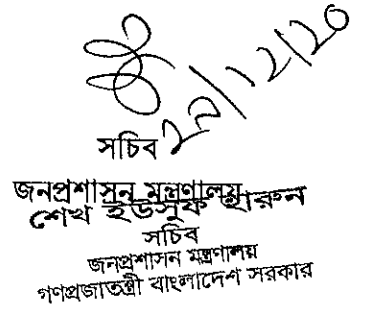 ২১/১২/২০
সচিব
জনপ্রশাসন মন্ত্রণালয়
শেখ ইউসুফ হারুন
সচিব
জনপ্রশাসন মন্ত্রণালয়
গণপ্রজাতন্ত্রী বাংলাদেশ সরকার